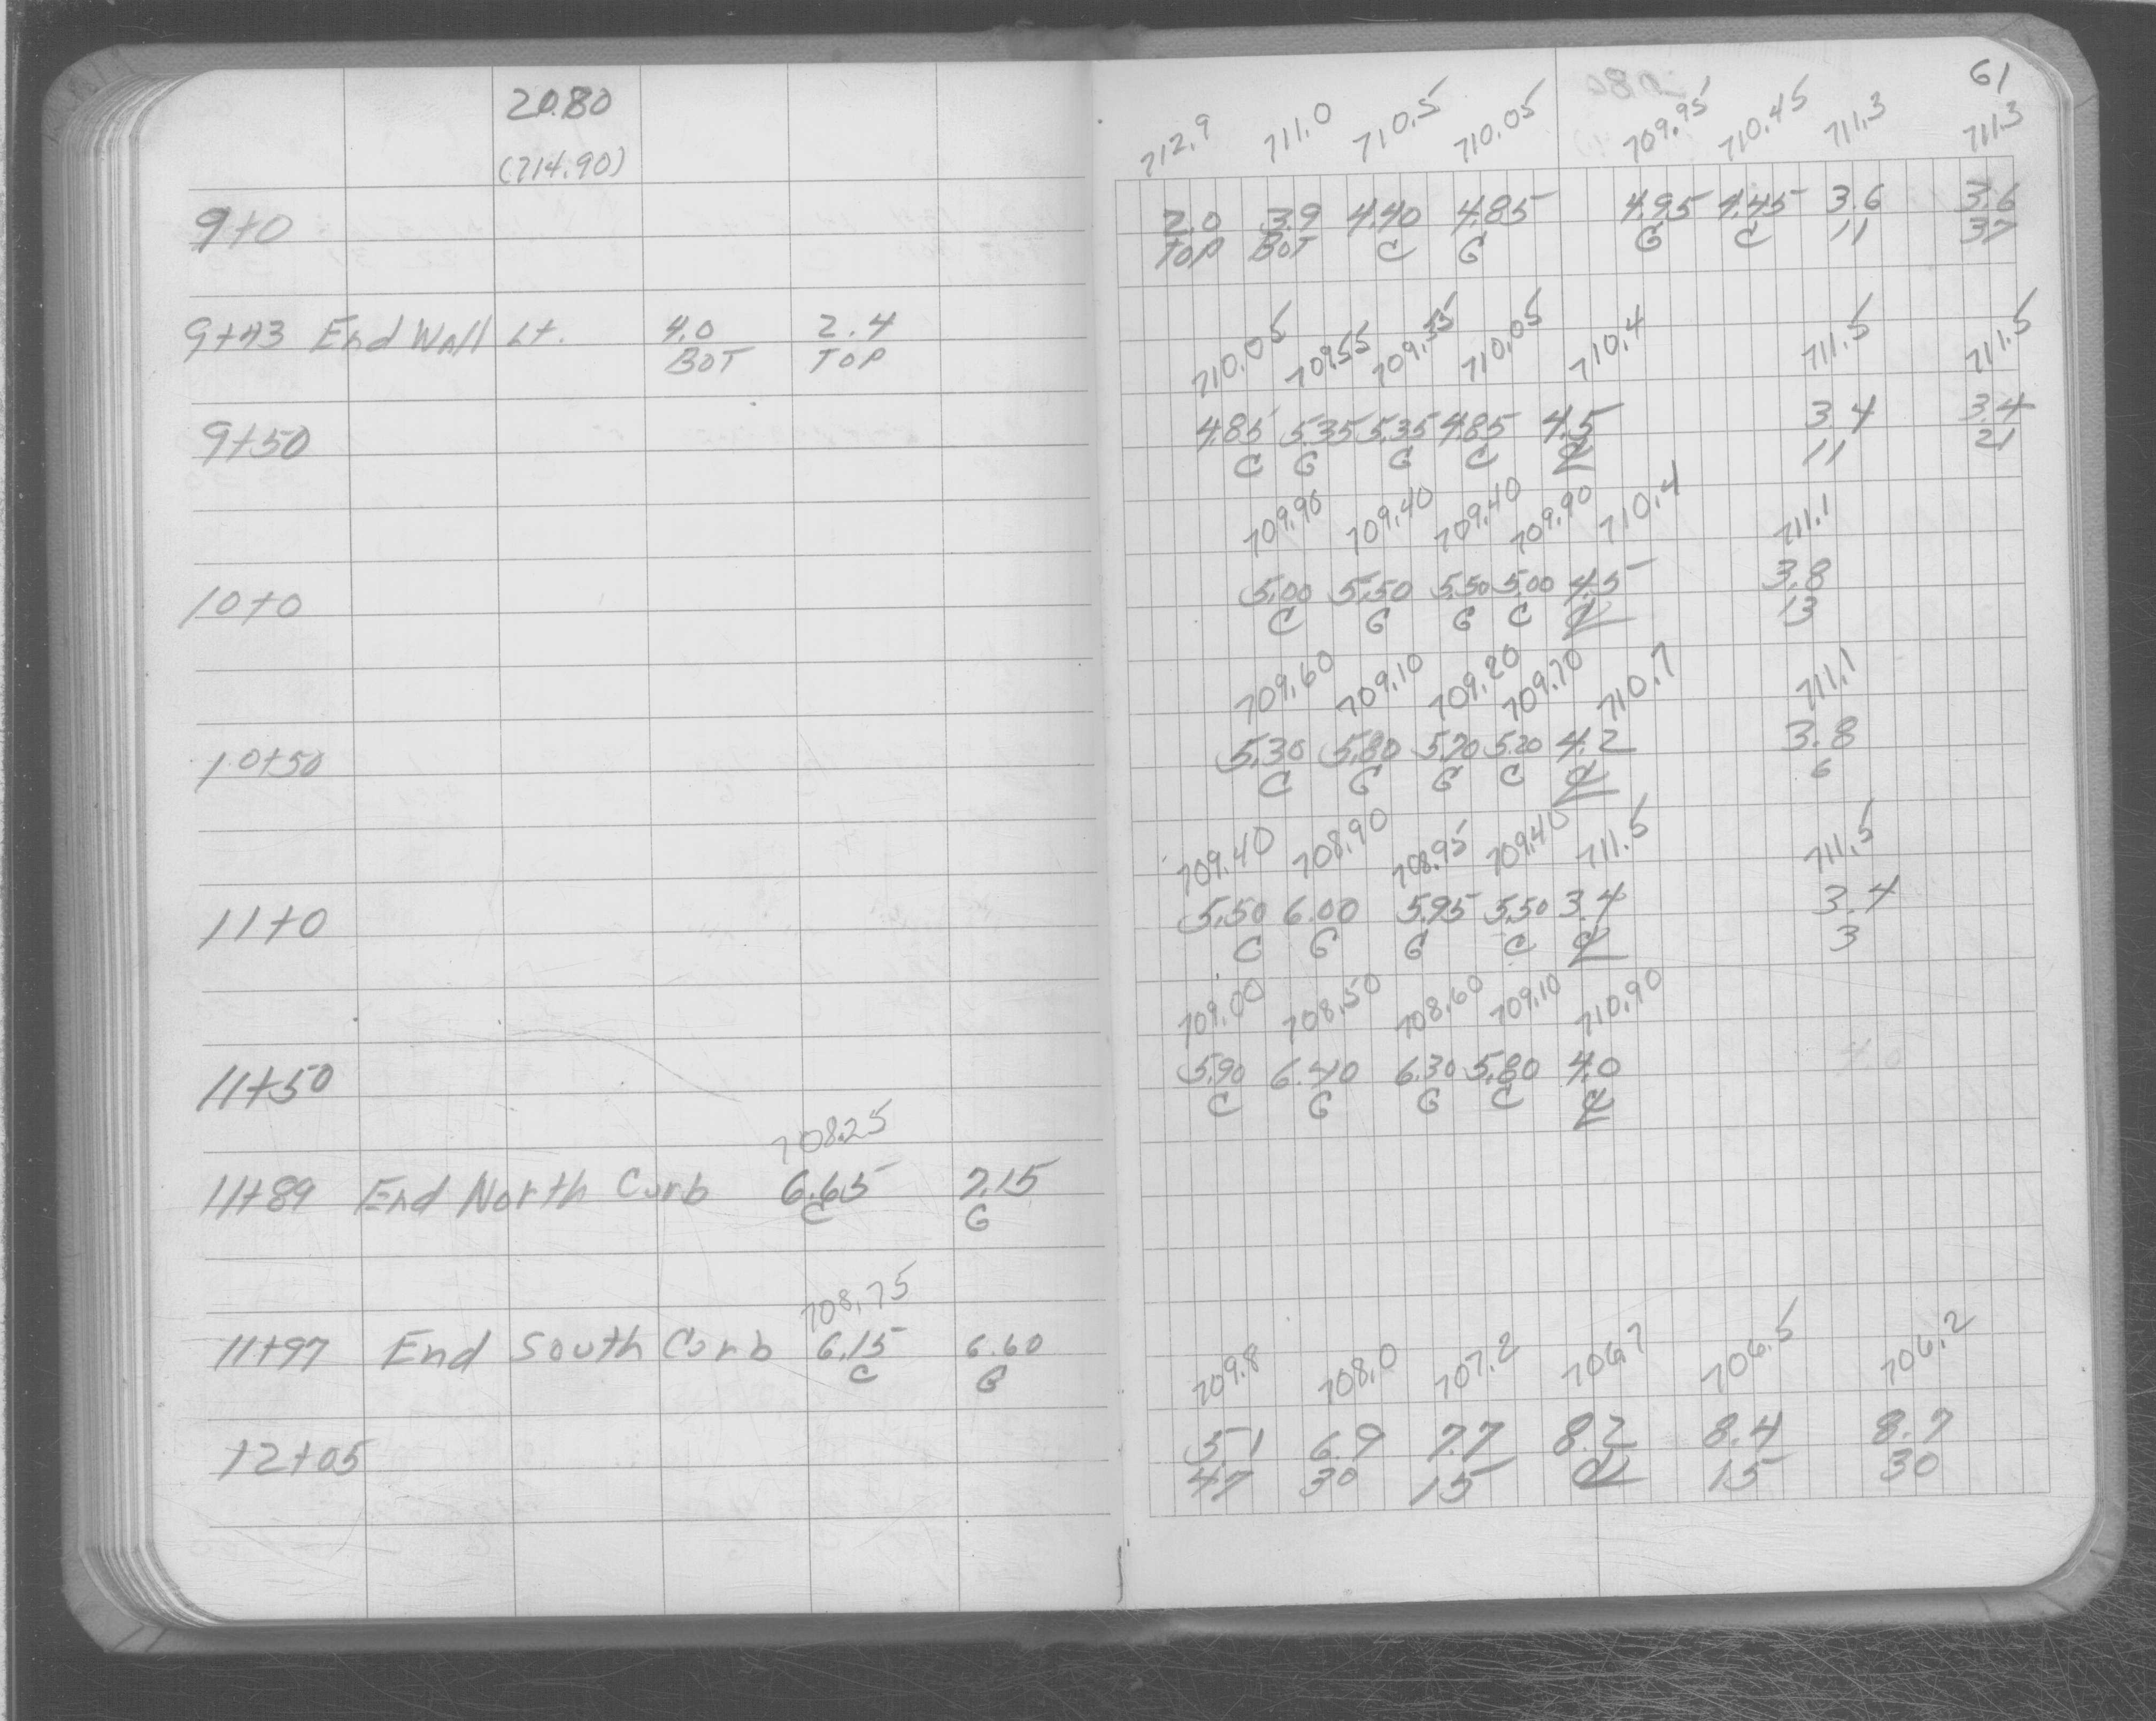 61
20.80
(714.90)
712.9 711.0 710.5 710.05 709.95 710.45 711.3 711.3
9+0 2.0 3.9 4.40 4.85 4.95 4.45 3.6 3.6
TOP BOT C G G C 11 37
9+43 End Wall Lt. 4.0 2.4
BOT TOP
710.05 709.55 709.55 710.05 710.4 711.5 711.5
9+50 4.85 5.35 5.35 4.85 4.5 3.4 3.4
C G G C ℄ 11 21
709.90 709.40 709.40 709.90 710.4 711.1
10+0 5.00 5.50 5.50 5.00 4.5 3.8
C G G C ℄ 13
709.60 709.10 709.20 709.70 710.7 711.1
10+50 5.30 5.80 5.70 5.20 4.2 3.8
C G G C ℄ 6
709.40 708.90 708.95 709.40 711.5 711.5
11+0 5.50 6.00 5.95 5.50 3.4 3.4
C G G C ℄ 3
709.00 708.50 708.60 709.10 710.90
11+50 5.90 6.40 6.30 5.80 4.0
C G G C ℄
708.25
11+89 End North Curb 6.65 7.15
C G
708.75
11+97 End South Curb 6.15 6.60
C G
709.8 708.0 707.2 706.7 706.5 706.2
12+05 5.1 6.9 7.7 8.2 8.4 8.7
47 30 15 ℄ 15 30